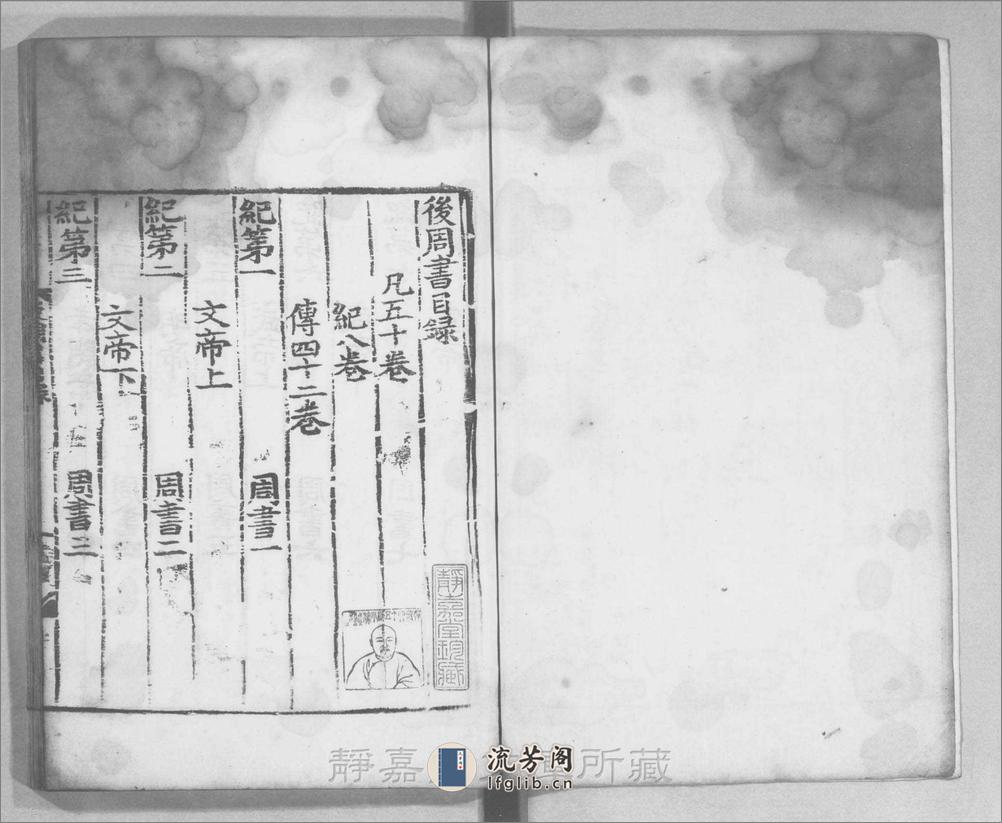 後周書目録
凡五十卷
紀八卷
傳四十二卷
紀第一 周書一
文帝上
紀第二 周書二
文帝下
紀第三 周書三
靜嘉堂珍藏
靜嘉
所藏
流芳阁
lfglib.cn